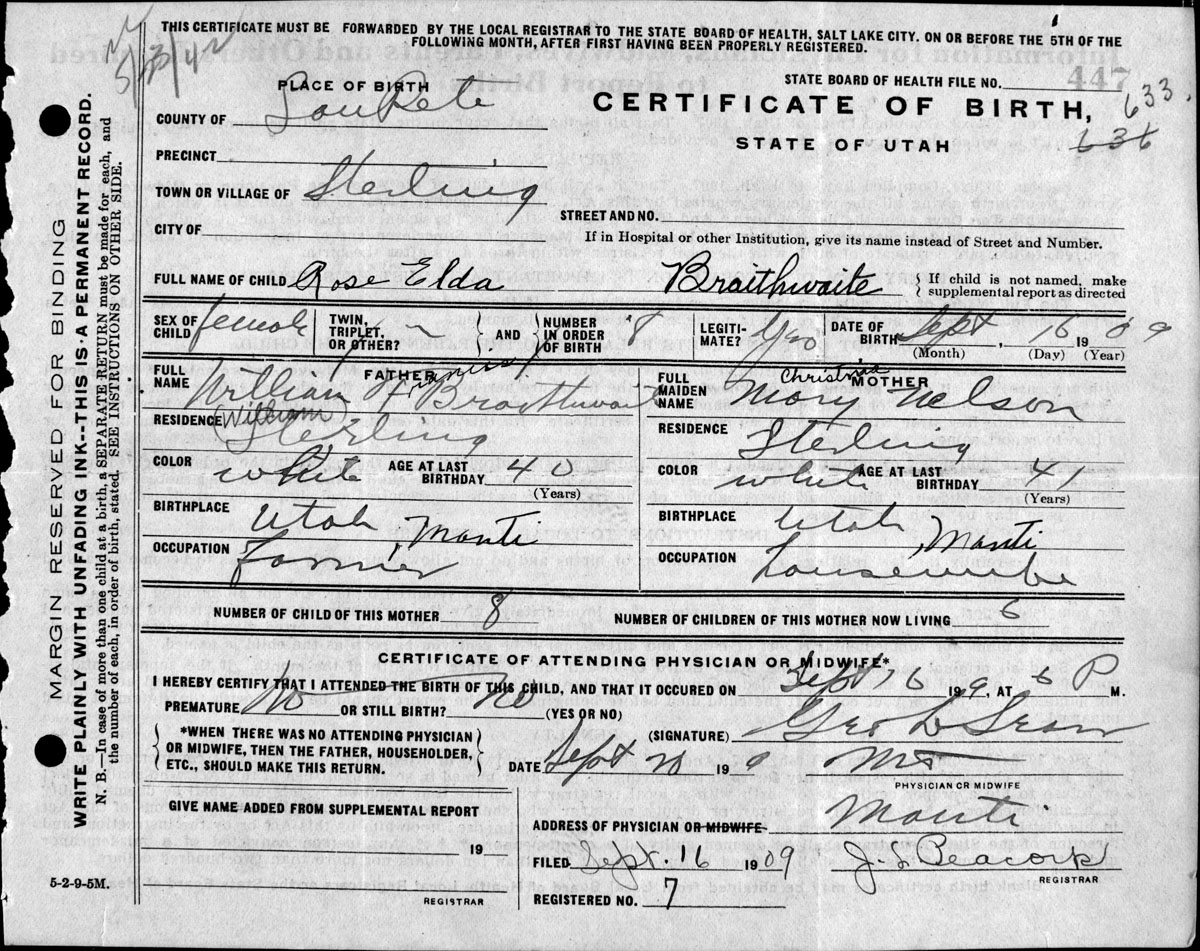 THIS CERTIFICATE MUST BE FORWARDED BY THE LOCAL REGISTRAR TO THE STATE BOARD OF HEALTH, SALT LAKE CITY. ON OR BEFORE THE 5TH OF THE
FOLLOWING MONTH, AFTER FIRST HAVING BEEN PROPERLY REGISTERED.
STATE BOARD OF HEALTH FILE NO. 447
PLACE OF BIRTH
CERTIFICATE OF BIRTH, 633
COUNTY OF SanPete
STATE OF UTAH 636
PRECINCT
TOWN OR VILLAGE OF Sterling
STREET AND NO.
CITY OF
If in Hospital or other Institution, give its name instead of Street and Number.
FULL NAME OF CHILD Rose Elda Braithwaite { If child is not named, make
supplemental report as directed
SEX OF CHILD female TWIN, TRIPLET, OR OTHER? { AND } NUMBER IN ORDER OF BIRTH 8 LEGITIMATE? Yes DATE OF BIRTH Sept, 16 1909
(Month) (Day) (Year)
FATHER
FULL NAME William F Braithwaite
Francis
(William)
RESIDENCE Sterling
COLOR white AGE AT LAST BIRTHDAY 40
(Years)
BIRTHPLACE Utah, Manti
OCCUPATION Farmer
MOTHER
Christina
FULL MAIDEN NAME Mary Nelson
RESIDENCE Sterling
COLOR white AGE AT LAST BIRTHDAY 41
(Years)
BIRTHPLACE Utah, Manti
OCCUPATION housewife
NUMBER OF CHILD OF THIS MOTHER 8 NUMBER OF CHILDREN OF THIS MOTHER NOW LIVING 6
CERTIFICATE OF ATTENDING PHYSICIAN OR MIDWIFE*
I HEREBY CERTIFY THAT I ATTENDED THE BIRTH OF THIS CHILD, AND THAT IT OCCURED ON Sept 16 199, AT 6 P M.
PREMATURE No OR STILL BIRTH? No (YES OR NO)
(SIGNATURE) Geo L
*WHEN THERE WAS NO ATTENDING PHYSICIAN
OR MIDWIFE, THEN THE FATHER, HOUSEHOLDER,
ETC., SHOULD MAKE THIS RETURN.
DATE Sept 20 199
PHYSICIAN OR MIDWIFE
GIVE NAME ADDED FROM SUPPLEMENTAL REPORT
19
REGISTRAR
ADDRESS OF PHYSICIAN OR MIDWIFE Manti
FILED Sept. 16 1909 J. L. Peacock
REGISTRAR
REGISTERED NO. 7
5-2-9-5M.
MARGIN RESERVED FOR BINDING
WRITE PLAINLY WITH UNFADING INK--THIS IS A PERMANENT RECORD.
N. B.—In case of more than one child at a birth, a SEPARATE RETURN must be made for each, and
the number of each, in order of birth, stated. SEE INSTRUCTIONS ON OTHER SIDE.